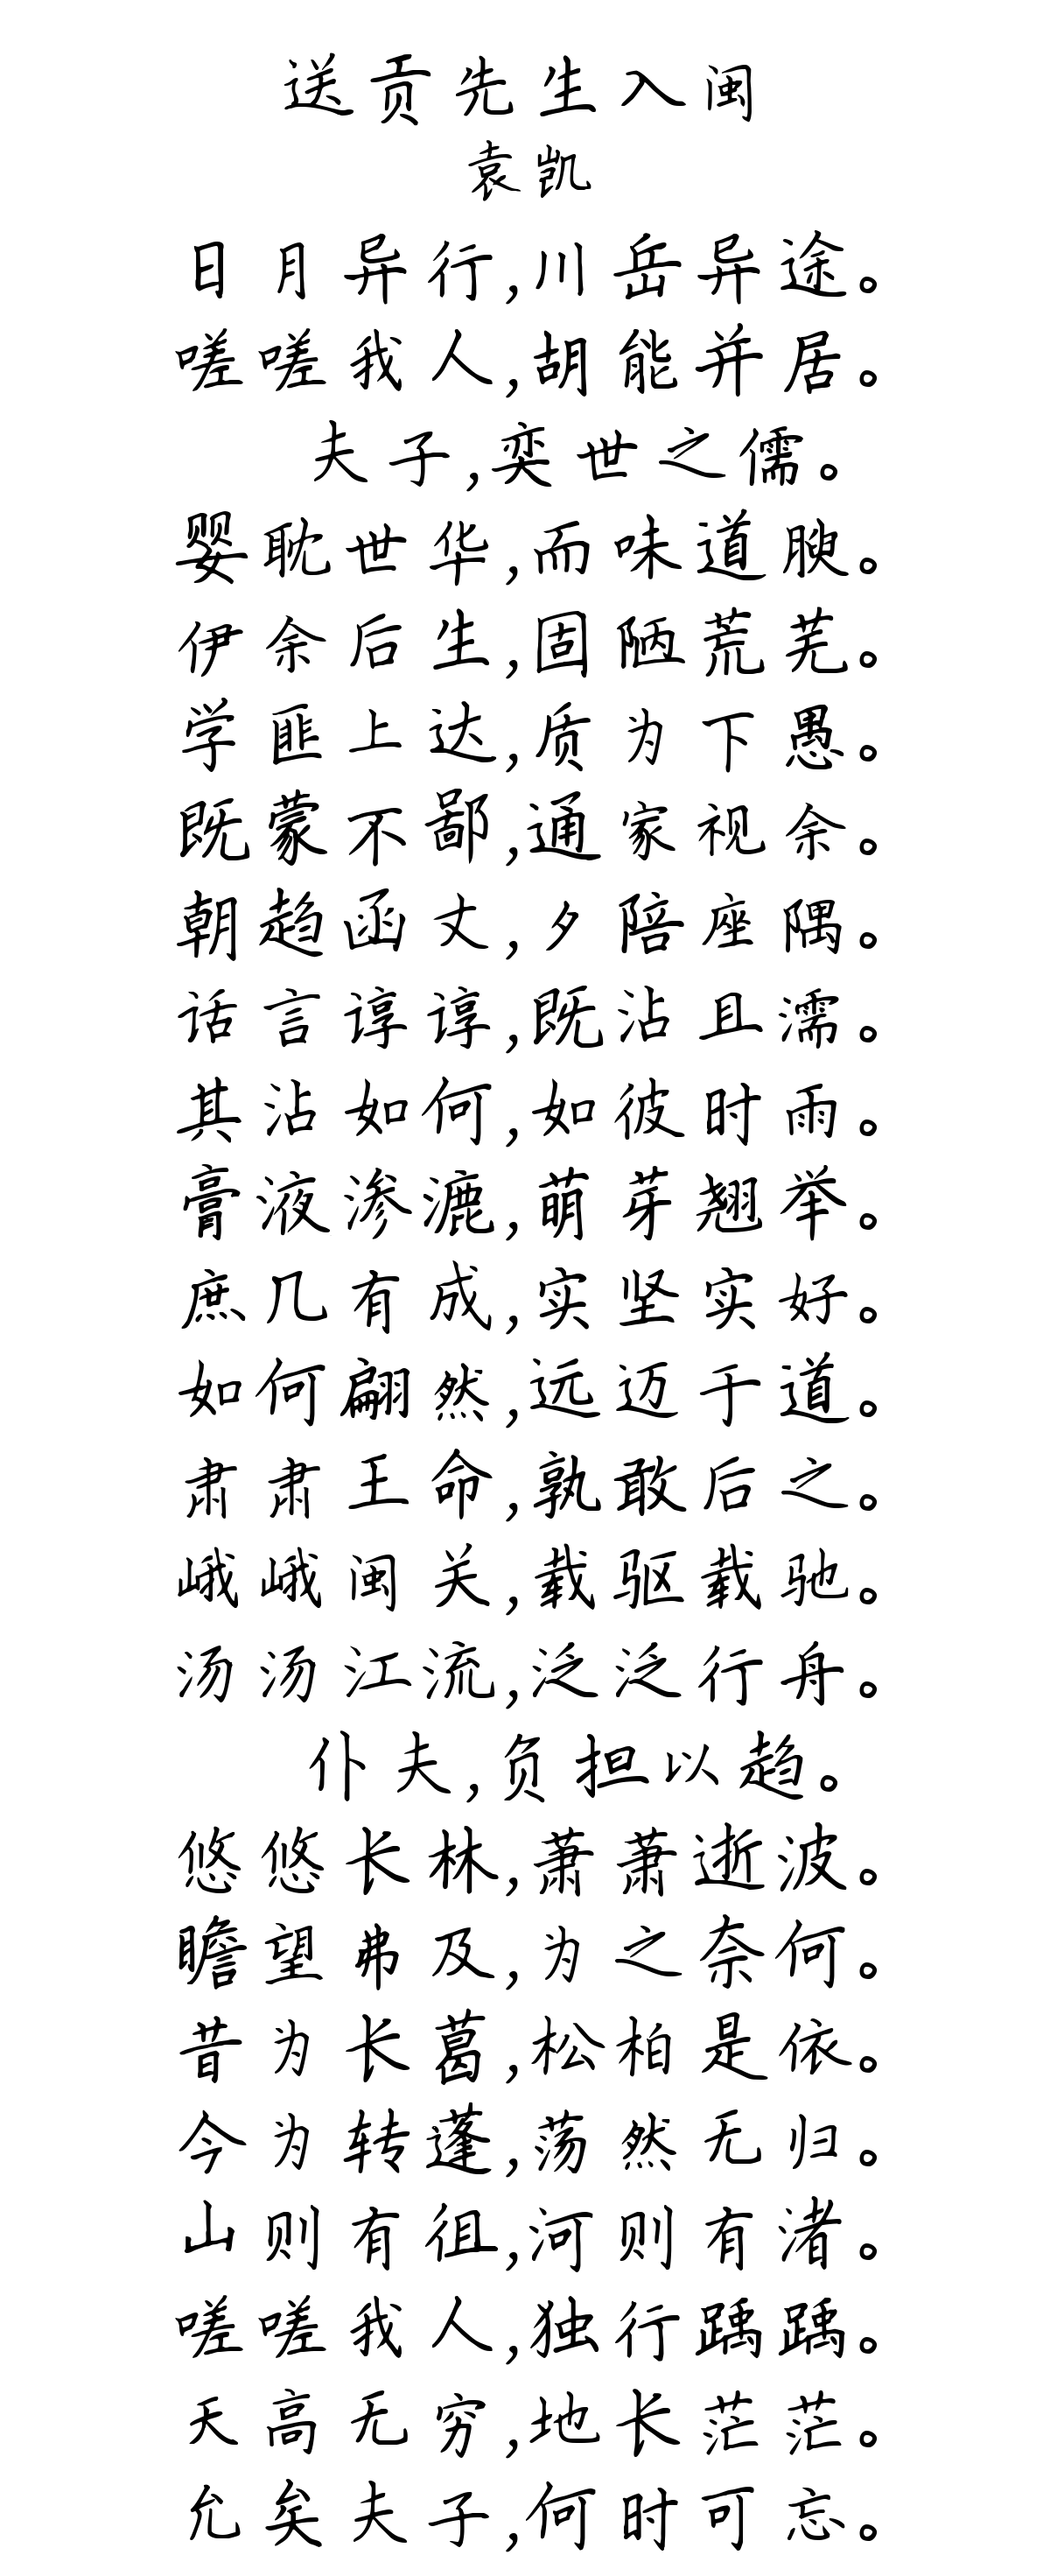 送贡先生入闽
袁凯
日月异行,川岳异途。
嗟嗟我人,胡能并居。
夫子,奕世之儒。
婴耽世华,而味道腴。
伊余后生,固陋荒芜。
学匪上达,质为下愚。
既蒙不鄙,通家视余。
朝趋函丈,夕陪座隅。
话言谆谆,既沾且濡。
其沾如何,如彼时雨。
膏液渗漉,萌芽翘举。
庶几有成,实坚实好。
如何翩然,远迈于道。
肃肃王命,孰敢后之。
峨峨闽关,载驱载驰。
汤汤江流,泛泛行舟。
仆夫,负担以趋。
悠悠长林,萧萧逝波。
瞻望弗及,为之奈何。
昔为长葛,松柏是依。
今为转蓬,荡然无归。
山则有徂,河则有渚。
嗟嗟我人,独行踽踽。
天高无穷,地长茫茫。
允矣夫子,何时可忘。